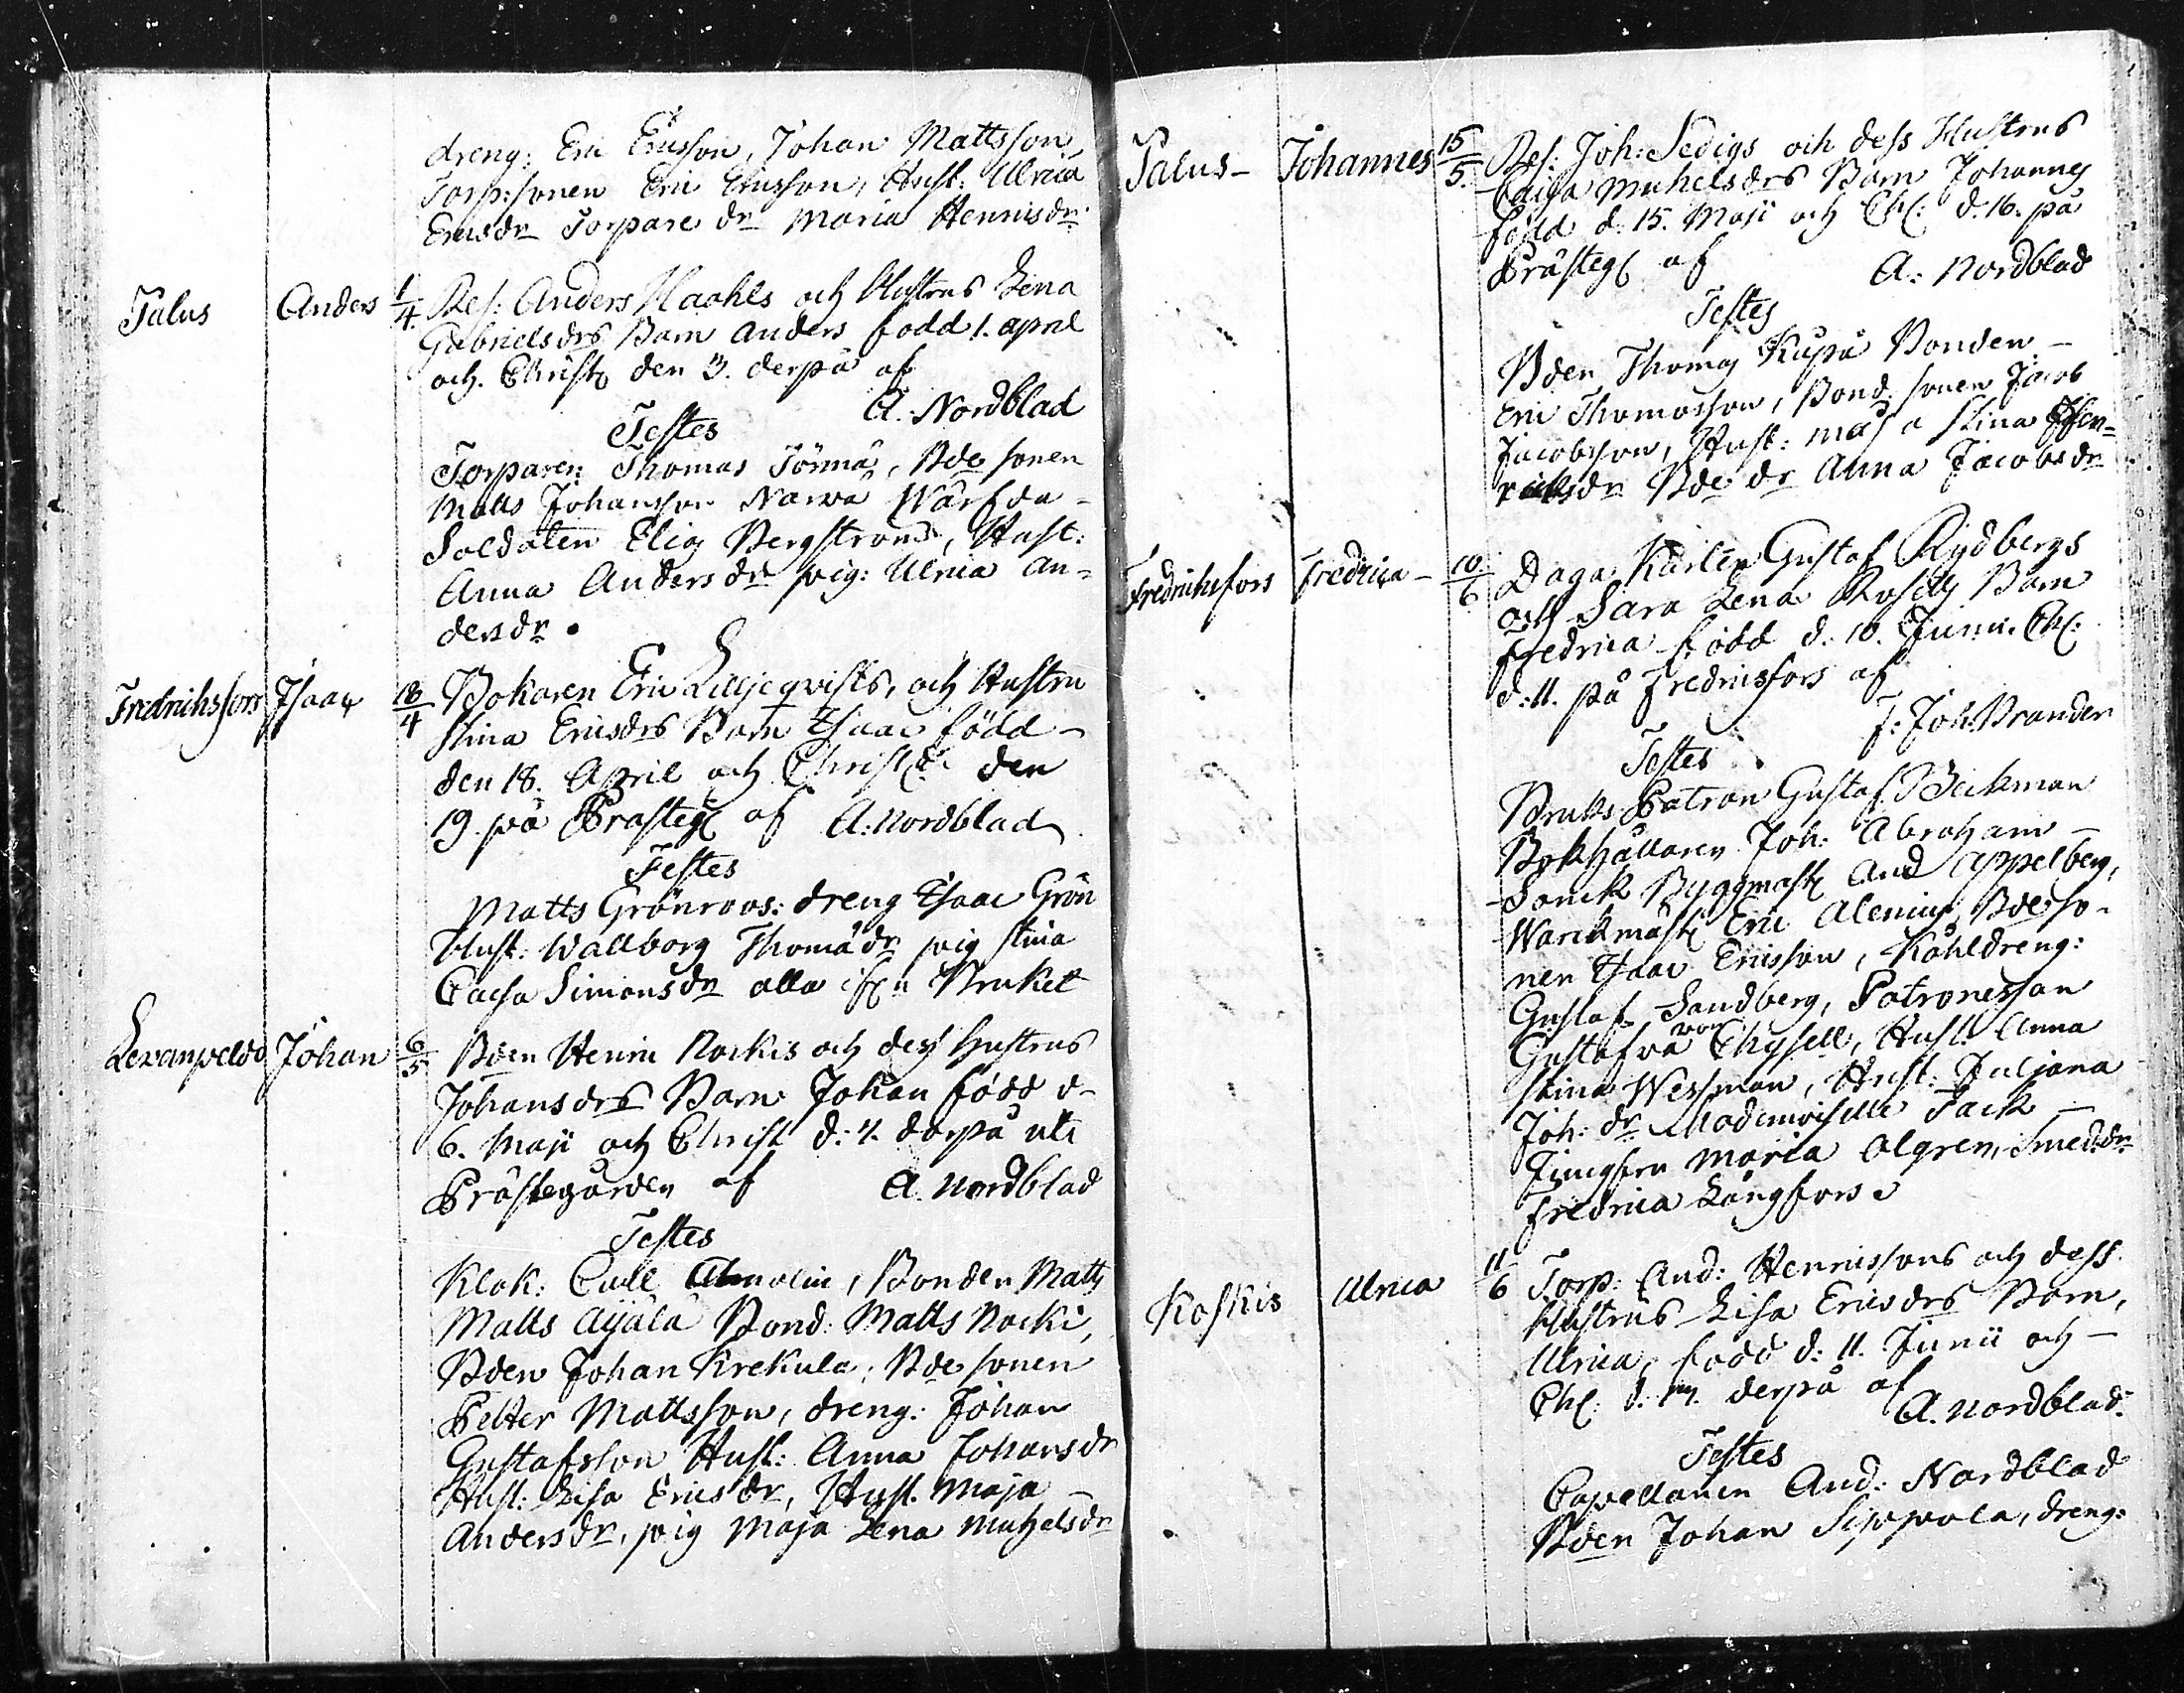 dreng: Eric Ericsson, Johan Mattsson,
Torp:sonen Eric Ericsson, Hust: Ulrica
Ericsdr Torpare dr Maria Henricsdr
Talus Anders 1/4. Res: Anders Haahls och Hustrus Lena
Gabrielsdrs Barn Anders född 1. april
och Christ den 3. derpå af
A. Nordblad
Testes
Torparen: Thomas Törmä, Bde sonen
Matts Johansson Narva Wärfda-
Soldaten Elias Bergström, Hust:
Anna Andersdr pig: Ulrica An-
dersdr.
Fredrichsfors Isaac 18/4 Bokaren Eric Lilljeqvists, och Hustru
Stina Ericsdrs Barn Isaac född-
den 18. April och Christ: den
19. på Prästeg af A: Nordblad
Testes
Matts Grönroos: dreng Isaac Grön
Hust: Wallborg Thomædr pig Stina
Caisa Simonsdr alla Bruket
Levanpeldo Johan 6/5 Bden Henric Nockis och dess Hustrus
Johansdrs Barn Johan född d-
6. Maji och Christ d: 7. derpå uti
Prästegården af A. Nordblad
Testes
Klok: Call Almolin, Bonden Matts
Matts Äijälä Bond: Matts Nocki,
Bden Johan Krekula, Bde sonen
Petter Mattsson, dreng: Johan
Gustafsson Hust: Anna Johansdr
Hust: Lisa Ericsdr, Hust. Maja -
Andersdr, pig Maja Lena Michelsdr
Talus- Johannes 15/5. Res: Joh: Sedigs och dess Hustrus
Caisa Michelsdrs Barn Johannes
född d. 15. Maji och Chr: d. 16. på
Prästeg af A: Nordblad
Testes
Bden Thomas Kupa Bonden -
Eric Thomasson, Bond sonen Jacob
Jacobsson, Hust: Maja Stina Hen-
ricksdr Bde dr Anna Jacobsdr
Fredrichsfors Fredrica - 10/6 Daga Karlen Gustaf Rydbergs
och Sara Lena Barn
Fredrica född d. 10. Junii. Chr:
d: 11. på Fredricsfors af
F: Joh: Brander
Testes
Bruks Patron Gustaf Beckman
Bokhållaren Joh: Abraham -
Sonck Byggmast And Appelberg,
Warckmäst Eric Alenius, Bde so-
nen Isaac Ericsson, Kohldreng:
Gustaf Sandberg, Patronessan
Gustafva von Chysell, Hust: Anna
Stina Wessman, Hust: Juljana
Joh: dr Mademoiselle Pack -
Jungfrun Maria Algren, Smed:dr
Fredrica Långfors
Koskis Ulrica 11/6 Torp: And: Henricssons och dess
Hustrus Lisa Ericsdrs Barn,
Ulrica, född d: 11. Junii och -
Chr: d. derpå af
A. Nordblad.
Testes
Capellanen And: Nordblad
Bden Johan Sippola, dreng: